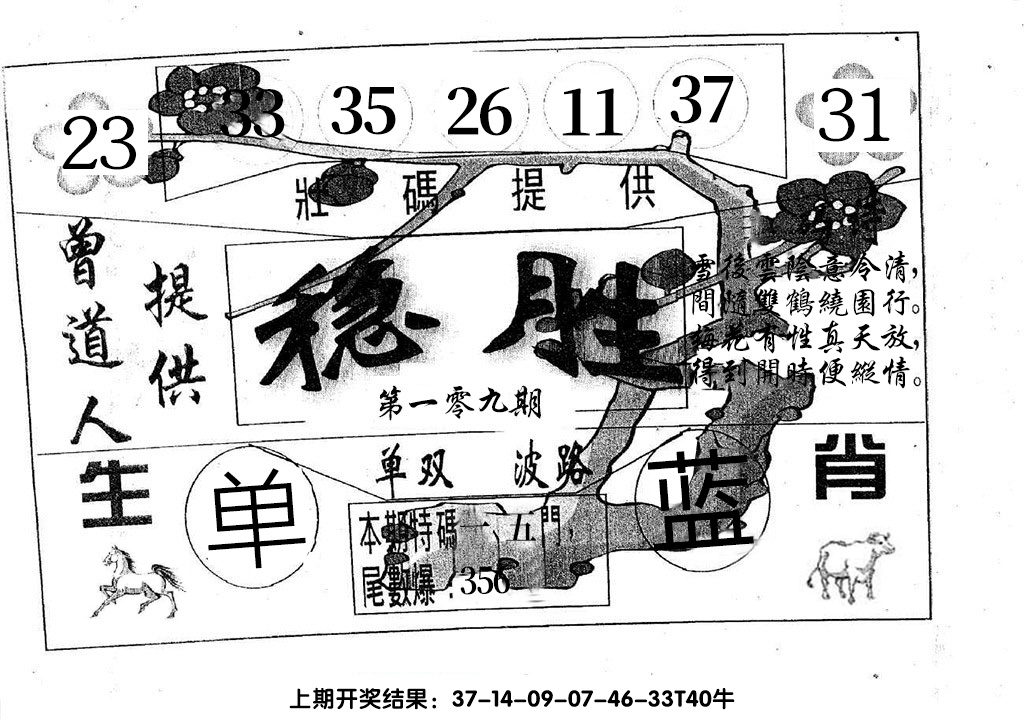 23 33 35 26 11 37 31
壯碼提供
曾道人
提供
特
雪後雲陰意冷清，
間隨雙鶴繞園行。
梅花有性真天放，
得到開時便縱情。
稳胜
第一零九期
单双 波路
生
单
蓝
肖
本期特碼一、五門，
尾數爆：356
上期开奖结果：37-14-09-07-46-33T40牛